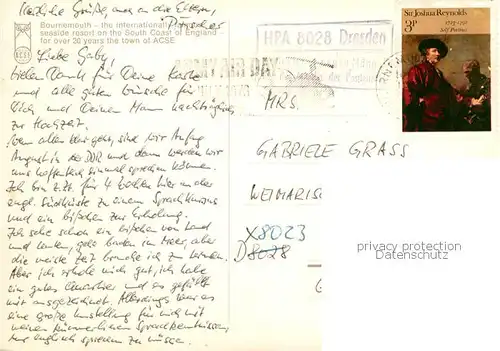 Herzliche Grüße, auch an die Eltern,
Bournemouth - the internationally
seaside resort on the South Coast of England -
for over 20 years the town of ACSE
Liebe Gaby!
Vielen Dank für Deine Karte
und alle guten Wünsche für
Dich und Deinen Mann nachträglich
zur Hochzeit.
Wenn alles klar geht, sind wir Anfang
August in der DDR und dann werden wir
uns hoffentlich einmal sprechen können.
Ich bin z. Zt. für 4 Wochen hier an der
engl. Südküste zu einem Sprachkursus
und ein bißchen zur Erholung.
Ich sehe schon ein bißchen von Land
und Leuten, gehe baden im Meer, aber
die meiste Zeit brauche ich zu lernen.
Aber ich erhole mich gut, ich habe
ein gutes Quartier und es gefällt
mir ausgezeichnet. Allerdings war es
eine große Umstellung für mich mit
meinen kümmerlichen Sprachkenntnissen,
nur englisch sprechen zu müssen.
HPA 8028 Dresden
Sir Joshua Reynolds
3P
1723-1792
Self Portrait
MRS.
GABRIELE GRASS
WEIMARISC
X8023
D8028
G
privacy protection
Datenschutz